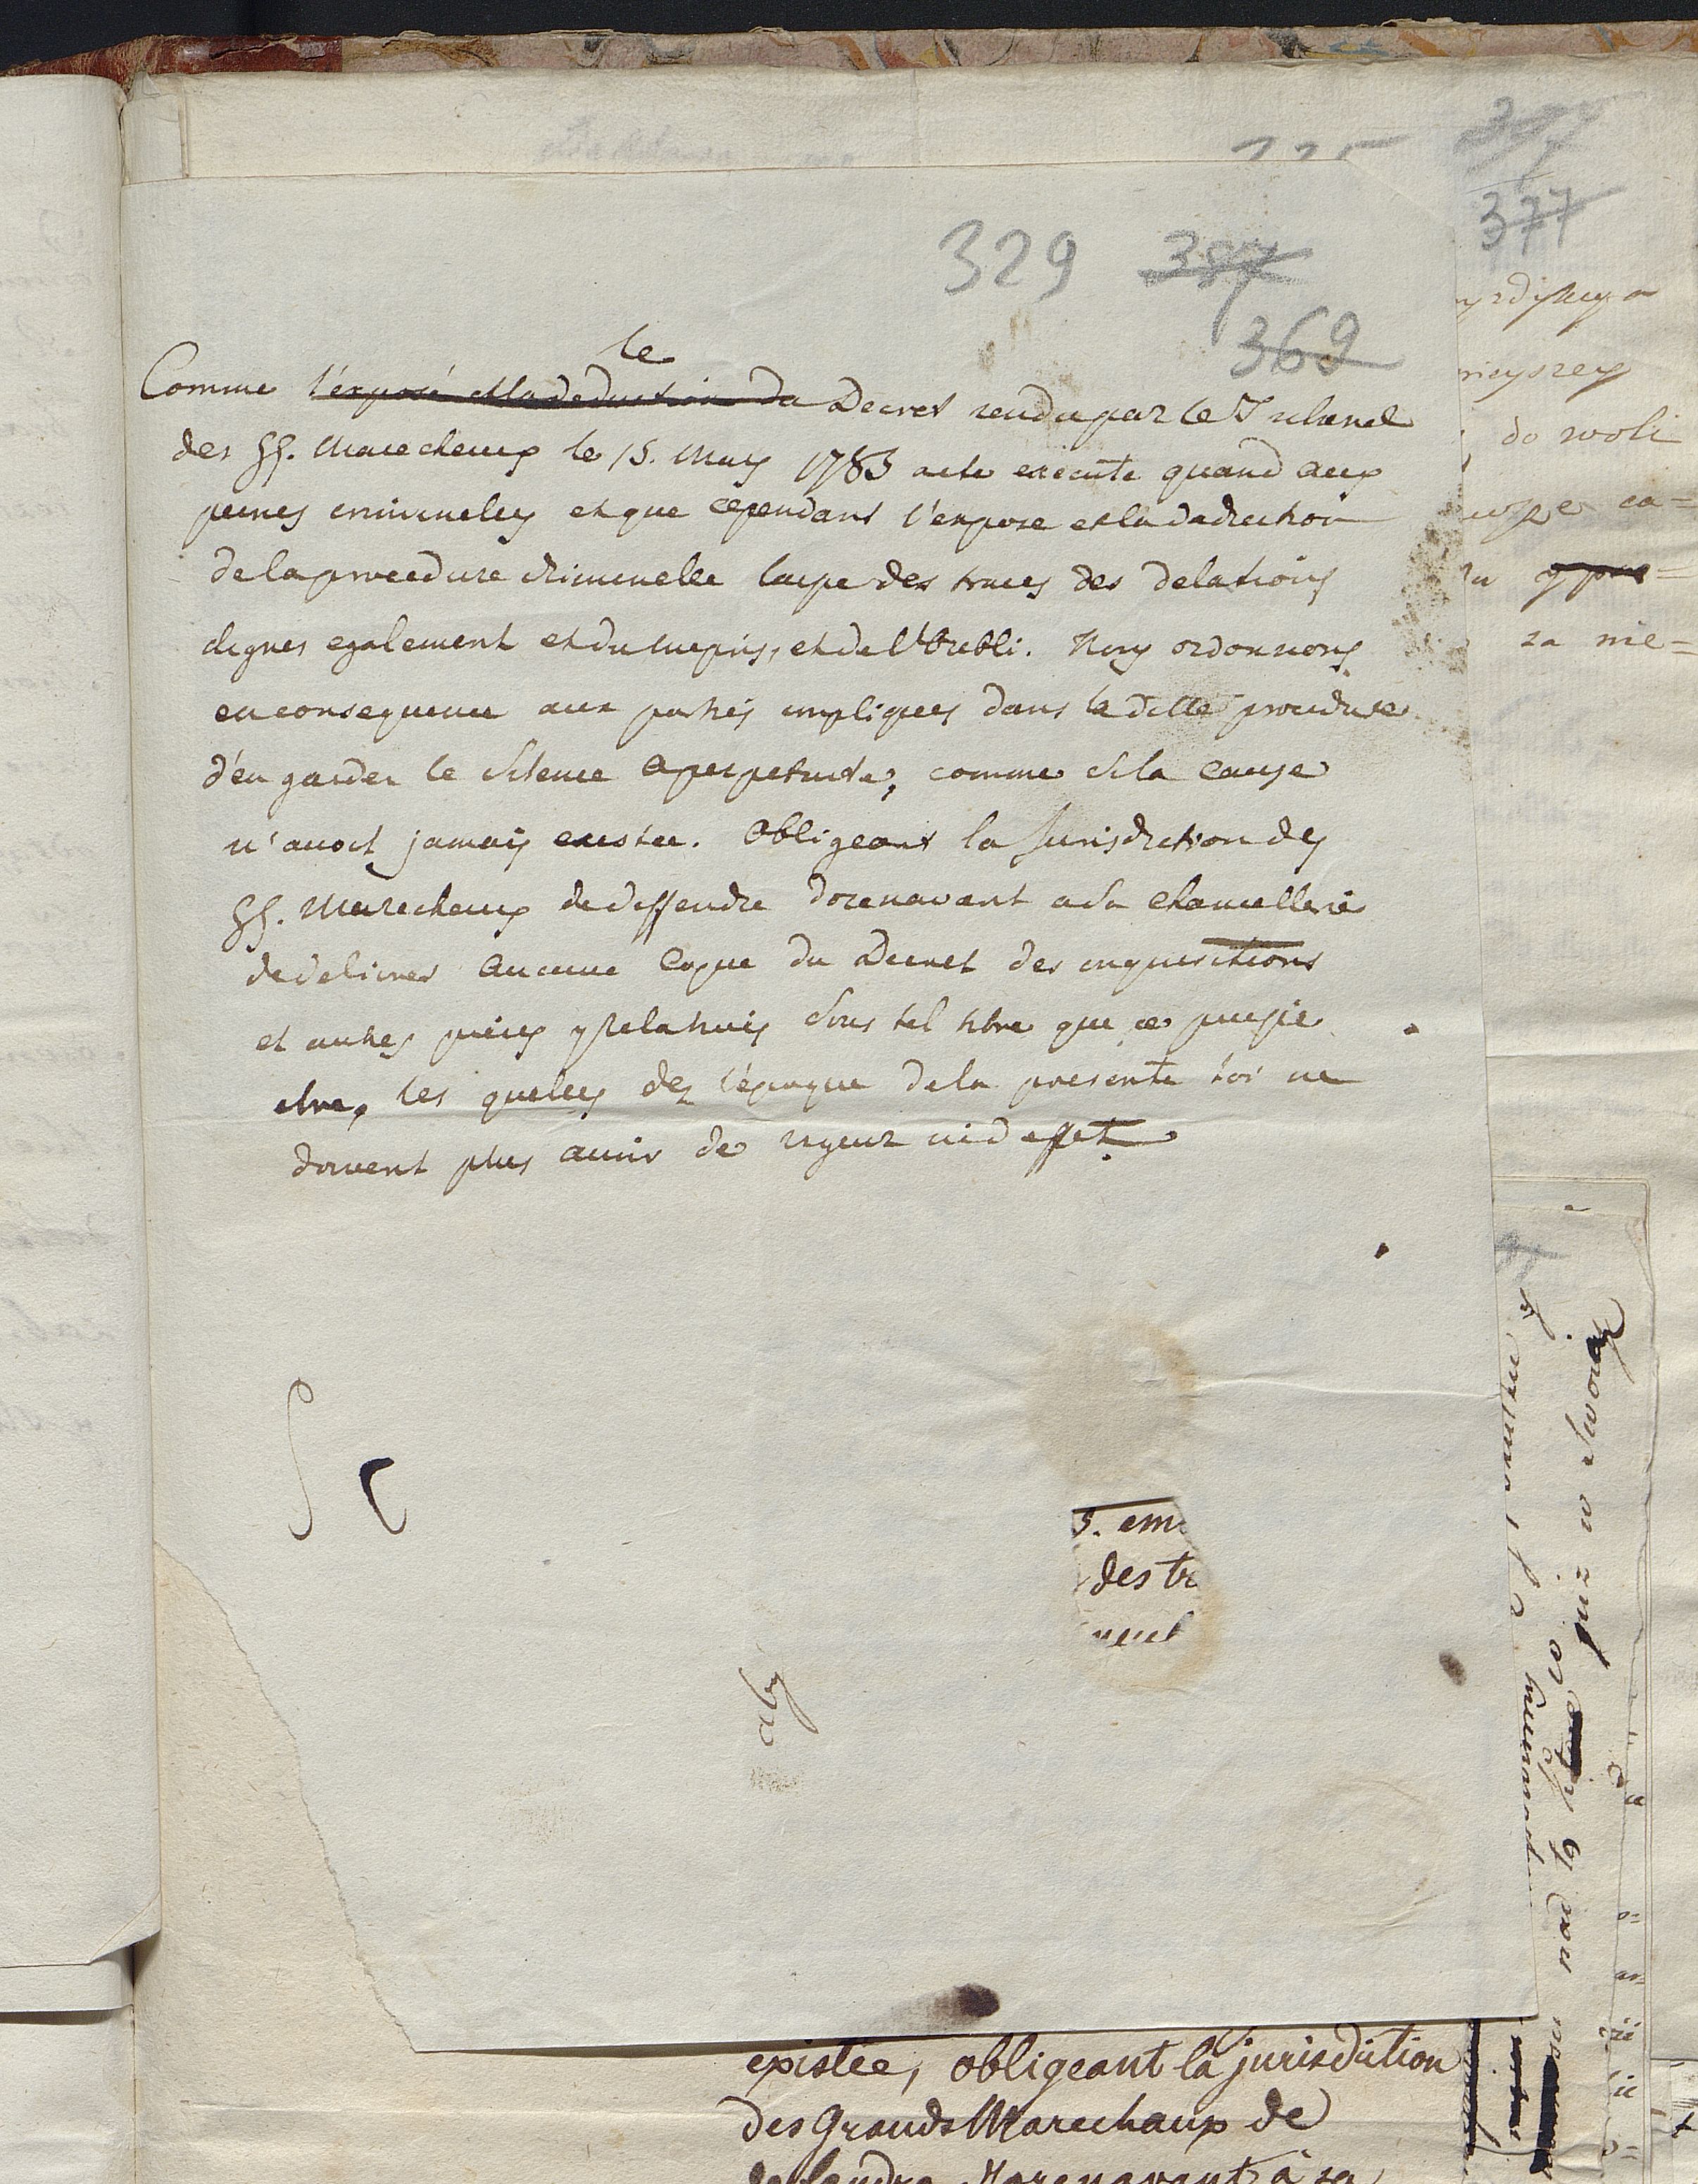 329 387
369
le
Comme l'exposé et la deduction du Decret rendu par le Tribunal
des GG. Marechaux le 15. Mars 1783 a ete execute quand aux
peines criminelles et que cependant l'expose et la deduction
de la procedure criminelle laisse des traces des delations
dignes egalement et du mepris, et de l'Oubli. Nous ordonnons
en consequence aux parties impliquees dans la ditte procedure
d'en garder le Silence a perpetuite, comme si la Cause
n'avoit jamais existee. Obligeant la Jurisdiction des
GG. Marechaux de deffendre dorenavant a sa Chancellerie
de delivrer aucune Copie du Decret des inquisitions
et autres pieces y relatives sous tel titre que ce puisse
etre, les quelles dez l'epoque de la presente loi ne
doivent plus avoir de vigueur ni d'effet.
des tr
aby
existée, obligeant la jurisdiction
des Grands Marechaux de
dorenavant à sa
377
do woli
ca=
za nie=